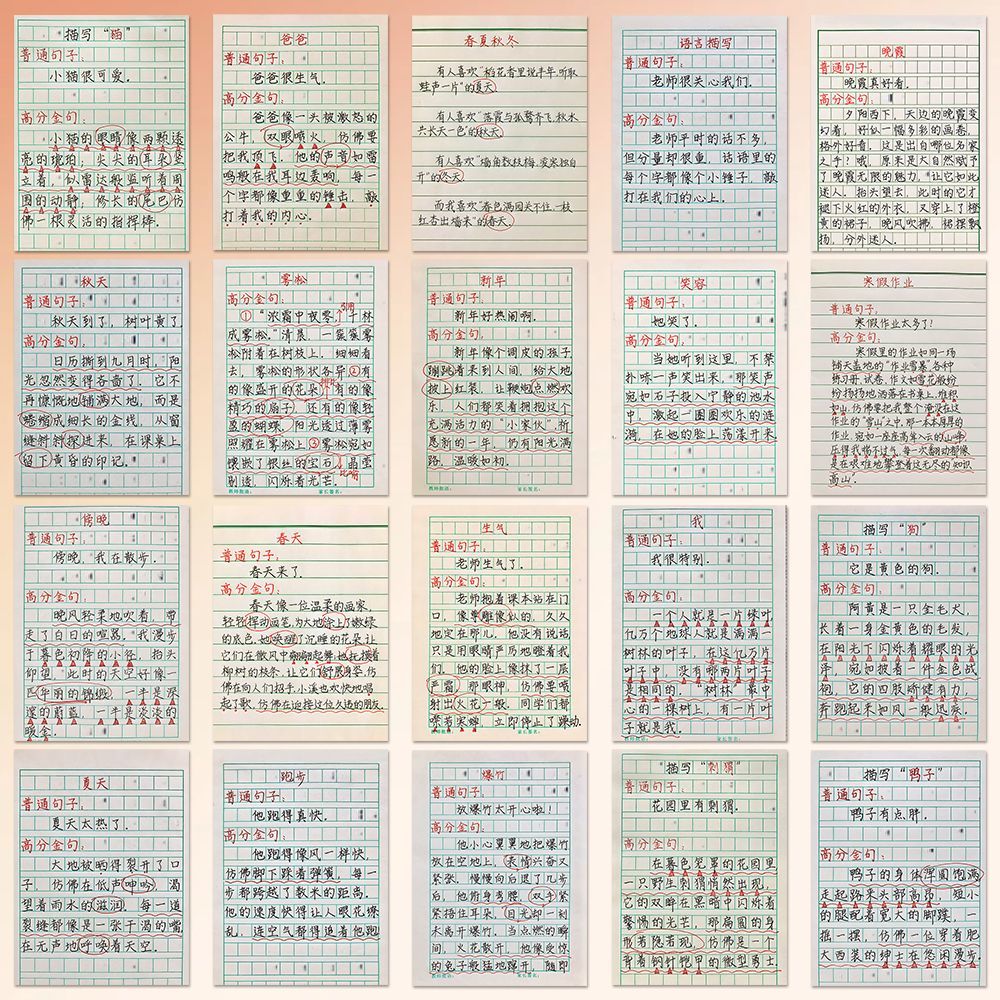 描写“猫”
普通句子：
小猫很可爱。
高分金句：
小猫的眼睛像两颗透
亮的琥珀，尖尖的耳朵竖
立着，似雷达般监听着周
围的动静，修长的尾巴仿
佛一根灵活的指挥棒。
爸爸
普通句子：
爸爸很生气。
高分金句：
爸爸像一头被激怒的
公牛，双眼喷火，仿佛要
把我顶飞，他的声音如雷
鸣般在我耳边轰响，每一
个字都像重重的锤击，敲
打着我的内心。
春夏秋冬
有人喜欢“稻花香里说丰年，听取
蛙声一片”的夏天
有人喜欢“落霞与孤鹜齐飞，秋水
共长天一色”的秋天
有人喜欢“墙角数枝梅，凌寒独自
开”的冬天
而我喜欢“春色满园关不住，一枝
红杏出墙来”的春天。
语言描写
普通句子：
老师很关心我们。
高分金句：
老师平时的话不多，
但分量却很重，话语里的
每个字都像个小锤子，敲
打在我们的心上。
晚霞
普通句子：
晚霞真好看。
高分金句：
夕阳西下，天边的晚霞变
幻着，好似一幅多彩的画卷，
格外好看，这是出自哪位名家
之手？哦，原来是大自然赋予
了晚霞无限的魅力，让它如此
迷人，抬头望去，此时的它才
褪下火红的外衣，又穿上了橙
黄的裙子，晚风吹拂，裙摆飘
扬，分外迷人。
秋天
普通句子：
秋天到了，树叶黄了。
高分金句：
日历撕到九月时，阳
光忽然变得吝啬了。它不
再慷慨地铺满大地，而是
蜷缩成细长的金线，从窗
缝斜斜探过来，在课桌上
留下黄昏的印记。
雾凇
高分金句：
①“浓霜中夜零，千林
成雾凇。”清晨，一簇簇雾
凇附着在树枝上，细细看
去，雾凇的形状各异②有
的像盛开的花朵，有的像
精巧的扇子，还有的像轻
盈的蝴蝶，阳光透过薄雾
照耀在雾凇上③雾凇宛如
镶嵌了银丝的宝石，晶莹
剔透，闪烁着光芒。
新年
普通句子：
新年好热闹啊。
高分金句：
新年像个调皮的孩子
蹦跳着来到人间，给大地
披上红装，让鞭炮点燃欢
乐，人们都笑着拥抱这个
充满活力的“小家伙”，祈
愿新的一年，仍有阳光满
路，温暖如初。
教师批语：
家长签名：
笑容
普通句子：
她笑了。
高分金句：
当她听到这里，不禁
扑嗤一声笑出来，那笑声
宛如石子投入宁静的池水
中，激起一圈圈欢乐的涟
漪，在她的脸上荡漾开来。
寒假作业
普通句子：
寒假作业太多了！
高分金句：
寒假里的作业如同一场
铺天盖地的“作业雪暴”各种
练习册、试卷、作文如雪花般纷
纷扬扬地洒落在书桌上，堆积
如山，仿佛要把我整个淹没在这
作业的“雪山”之中，那一本本厚厚的
作业，宛如一座座高耸入云的山峰
压得我喘不过气，每一次翻动都像
是在艰难地攀登着这无尽的知识
高山。
傍晚
普通句子：
傍晚，我在散步。
高分金句：
晚风轻柔地吹着，带
走了白日的喧嚣，我漫步
于暮色初降的小径，抬头
仰望，此时的天空好像一
匹华丽的锦缎，一半是深
邃的蔚蓝，一半是淡淡的
暖金。
春天
普通句子：
春天来了。
高分金句：
春天像一位温柔的画家，
轻轻挥动画笔，为大地涂上了嫩绿
的底色，她唤醒了沉睡的花朵，让
它们在微风中翩翩起舞；也抚摸着
柳树的枝条，让它们舒展身姿，仿
佛在向人们招手，小溪也欢快地唱
起了歌，仿佛在迎接这位久违的朋友。
生气
普通句子：
老师生气了。
高分金句：
老师抱着课本站在门
口，像尊雕像似的，久久
地定在那儿，他没有说话，
只是用眼睛严厉地瞪着我
们，他的脸上像抹了一层
严霜，那眼神，仿佛要喷
射出火花一般，同学们都
噤若寒蝉，立即停止了躁动。
教师批语：
家长签名：
我
普通句子：
我很特别。
高分金句：
一个人就是一片绿叶，
亿万个地球人就是满满一
树林的叶子，在这亿万片
叶子中，没有哪两片叶子
是相同的。“树林”最中
心的一棵树上，有一片叶
子就是我。
描写“狗”
普通句子：
它是黄色的狗。
高分金句：
阿黄是一只金毛犬，
长着一身金黄色的毛发，
在阳光下闪烁着耀眼的光
泽，宛如披着一件金色战
袍，它的四肢矫健有力，
奔跑起来如风一般迅疾。
夏天
普通句子：
夏天太热了。
高分金句：
大地被晒得裂开了口
子，仿佛在低声呻吟，渴
望着雨水的滋润，每一道
裂缝都像是一张干渴的嘴
在无声地呼唤着天空。
跑步
普通句子：
他跑得真快。
高分金句：
他跑得像风一样快，
仿佛脚下踩着弹簧，每一
步都跨越了数米的距离，
他的速度快得让人眼花缭
乱，连空气都得追着他跑
爆竹
普通句子：
放爆竹太开心啦！
高分金句：
他小心翼翼地把爆竹
放在空地上，表情兴奋又
紧张，慢慢向后退了几步
后，他俯身弯腰，双手紧
紧捂住耳朵，目光却一刻
未离开爆竹。当点燃的瞬
间，火花散开，他像受惊
的兔子般猛地蹿开，随即
描写“刺猬”
普通句子：
花园里有刺猬。
高分金句：
在暮色笼罩的花园里
一只野生刺猬悄然出现，
它的双眸在黑暗中闪烁着
警惕的光芒，那扁圆的身
躯若隐若现，仿佛是一个
背着钢针铠甲的微型勇士。
描写“鸭子”
普通句子：
鸭子有点胖。
高分金句：
鸭子的身体浑圆饱满
走起路来头部高昂，短小
的腿配着宽大的脚蹼，一
摇一摆，仿佛一位穿着肥
大西装的绅士在悠闲漫步。